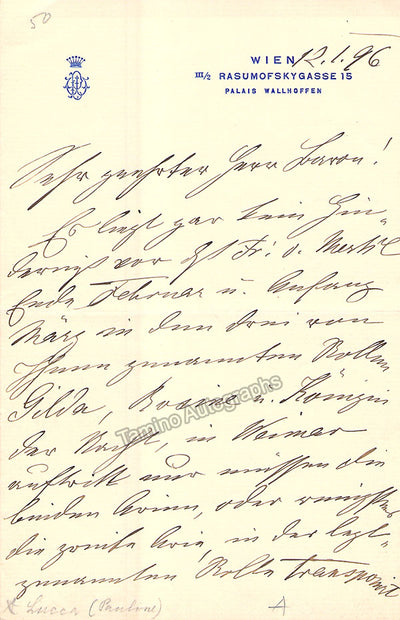 50
WIEN 12.1.96
III/2 RASUMOFSKYGASSE 15
PALAIS WALLHOFFEN
Sehr geehrter Herr Baron!
Es liegt gar kein Hin-
derniß vor daß Frl. v.
Ende Februar u. Anfang
März in den drei von
Ihnen genannten Rollen
Gilda, Rosine u. Königin
der Nacht, in Weimar
auftritt nur müssen die
beiden Arien, oder wenigstens
die zweite Arie, in der letzt-
genannten Rolle transponirt
Tamino Autographs
Lucca (Pauline)